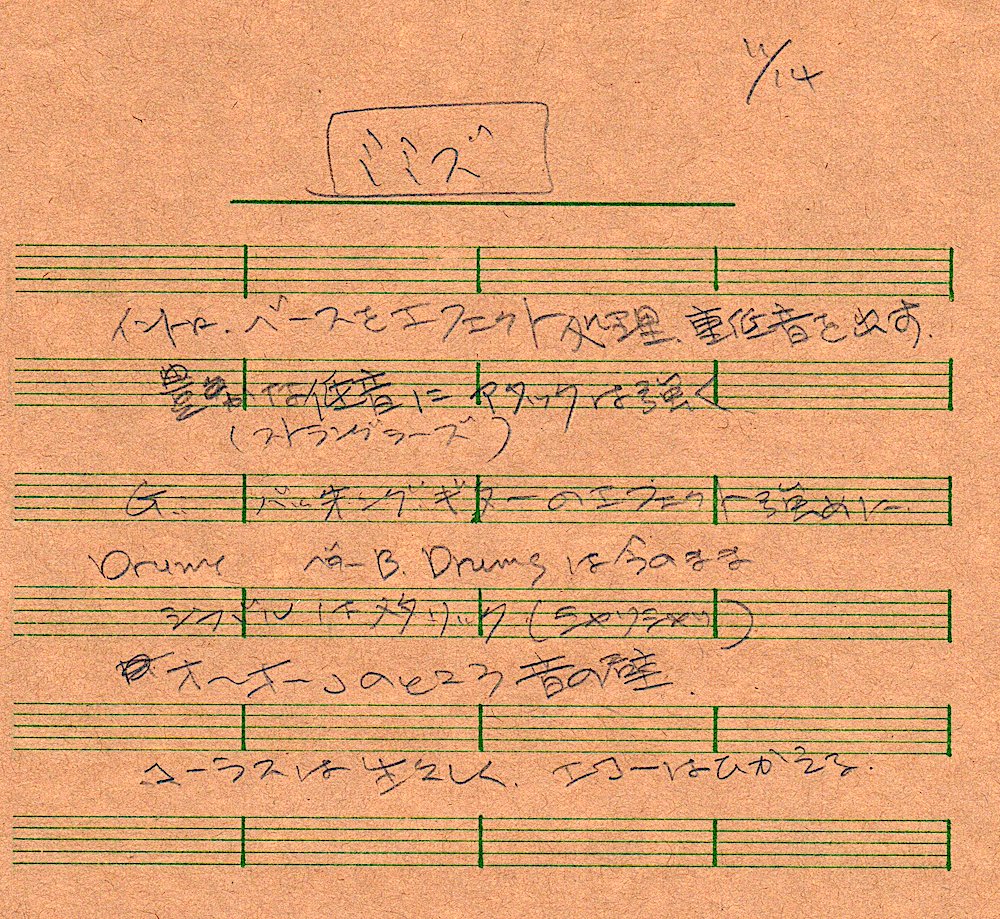 11/14
ミミズ
イントロ. ベースをエフェクト処理、重低音を出す.
豊かな低音に アタックは強く
(ストラングラーズ)
G. バッキングギターのエフェクト強めに.
Drums B. Drumsは今のまま
シンバルはメタリック (シャリシャリ)
オ〜オ〜」のところ 音の壁.
コーラスは生々しく. エコーはひかえる.